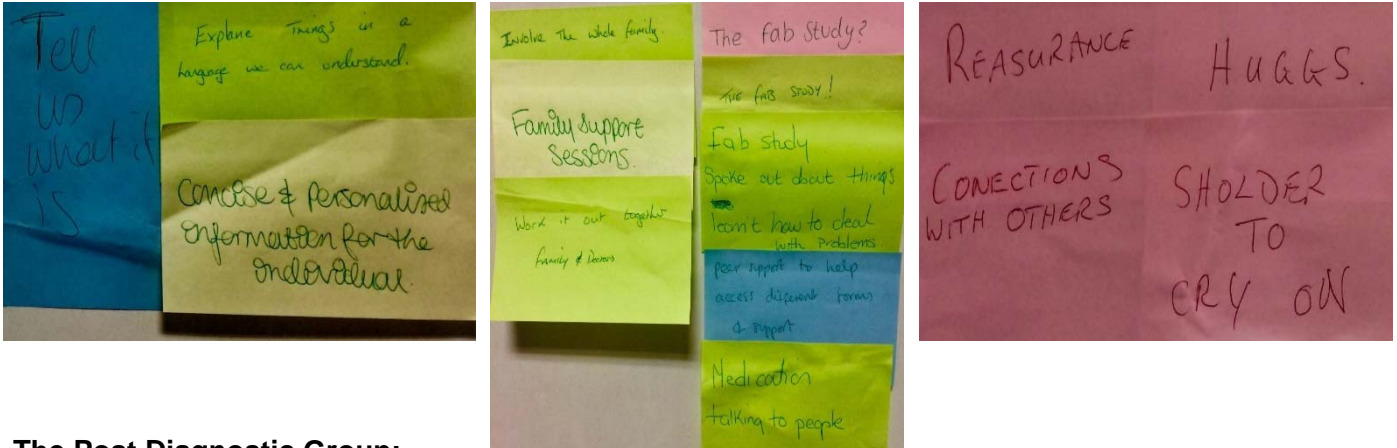 Tell
us
what it
is
Explane Things in a
language we can understand.
Concise & Personalised
information for the
individual.
Involve The whole family.
Family Support
Sessions.
Work it out together
family & Doctors
The fab Study?
THE FAB STUDY!
Fab study
Spoke out about things
learn't how to deal
with Problems.
peer support to help
access different forms
of support
Medication
talking to people
REASURANCE
HUGGS.
CONECTIONS
WITH OTHERS
SHOLDER
TO
CRY ON